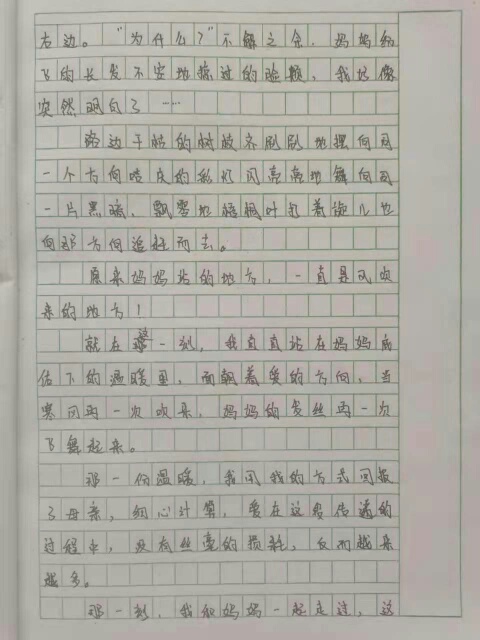 右边。“为什么?”不解之余,妈妈纷
飞的长发不安地掠过的脸颊,我好像
突然明白了……
路边干枯的树枝齐刷刷地摆向同
一个方向 的 们闪亮亮地舞向同
一片黑暗,飘零地梧桐叶打着卷儿也
向那方向追赶而去。
原来妈妈站的地方,一直是风吹
来的地方!
就在这一刻,我直直站在妈妈庇
佑下的温暖里,面朝着爱的方向,当
寒风再一次吹来,妈妈的发丝再一次
飞舞起来。
那一份温暖,我用我的方式回报
了母亲,细心计算,爱在这爱传递的
过程中,没有丝毫的损耗,反而越来
越多。
那一刻,我和妈妈一起走过,这